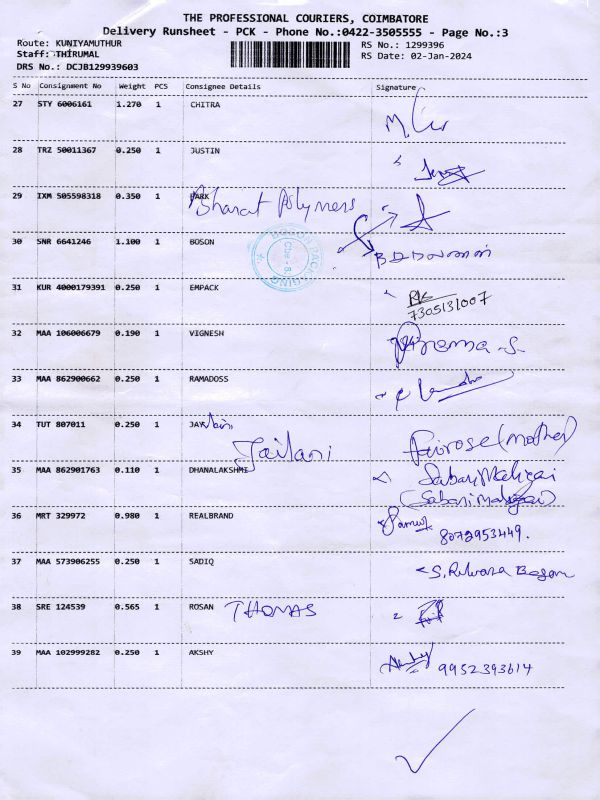 THE PROFESSIONAL COURIERS, COIMBATORE
Delivery Runsheet - PCK - Phone No.:0422-3505555 - Page No.:3
Route: KUNIYAMUTHUR RS No.: 1299396
Staff: THIRUMAL RS Date: 02-Jan-2024
DRS No.: DCJB129939603
S No Consignment No Weight PCS Consignee Details Signature
27 STY 6006161 1.270 1 CHITRA
28 TRZ 50011367 0.250 1 JUSTIN
29 IXM 505598318 0.350 1 PARK Bharat Polymers
30 SNR 6641246 1.100 1 BOSON
BOSON PACKAGING
Cbe - 8
31 KUR 4000179391 0.250 1 EMPACK
7305131007
32 MAA 106006679 0.190 1 VIGNESH Prema.S.
33 MAA 862900662 0.250 1 RAMADOSS
34 TUT 807011 0.250 1
Jailani Fairose (mother)
35 MAA 862901763 0.110 1 DHANALAKSHMI Sabari Maligai
(Sabari Maligai)
36 MRT 329972 0.980 1 REALBRAND
8072953449.
37 MAA 573906255 0.250 1 SADIQ
38 SRE 124539 0.565 1 ROSAN THOMAS
39 MAA 102999282 0.250 1 AKSHY 9952393614